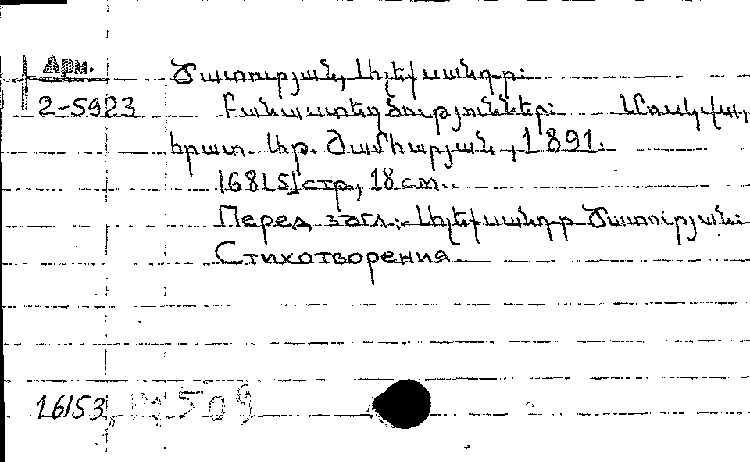 Арм.
Ծատուրյան, Ալեքսանդր։
2-5923
Բանաստեղծություններ։ Մոսկվա,
հրատ. Աբ. Ծամհարյան, 1891.
168[5] стр., 18 см.
Перед загл.: Ալեքսանդր Ծատուրյան։
Стихотворения
16153, 509